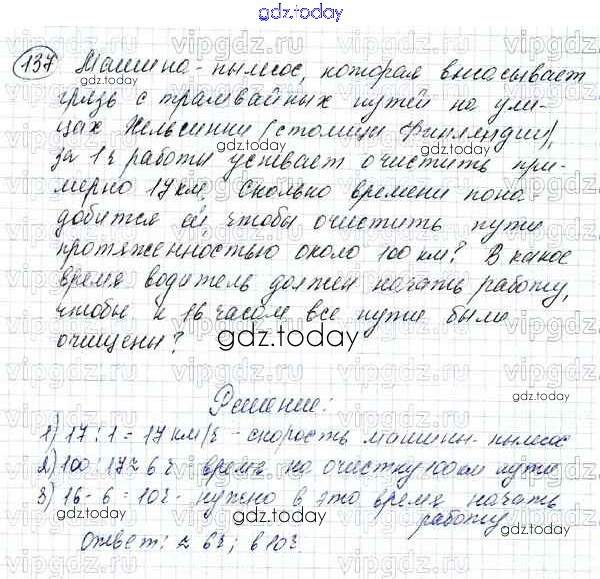 gdz.today
137 Машина-пылесос, которая высасывает
грязь с трамвайных путей на ули-
цах Хельсинки (столицы Финляндии),
за 1 ч работы успевает очистить при-
мерно 17 км. Сколько времени пона-
добится ей, чтобы очистить пути
протяженностью около 100 км? В какое
время водитель должен начать работу,
чтобы к 16 часам все пути были
очищены?
gdz.today
Решение:
1) 17 : 1 = 17 км/ч - скорость машины-пылесос
2) 100 : 17 ≈ 6 ч - время на очистку 100 км пути
3) 16 - 6 = 10 ч - нужно в это время начать
работу
Ответ: ≈ 6 ч; в 10 ч.